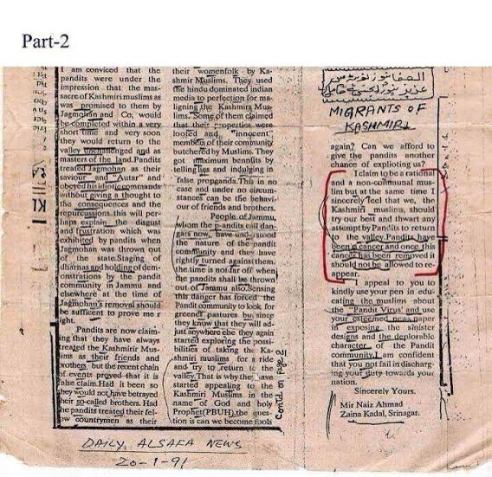 Part-2
I am conviced that the
pandits were under the
impression that the mas-
sacre of Kashmiri muslims as
was promised to them by
Jagmohan and Co, would
be completed within a very
short time and very soon
they would return to the
valley unchallenged and as
masters of the land. Pandit
treated Jagmohan as their
saviour and "Autar" and
obeyed his idiotic commands
without giving a thought to
the consequences and the
repurcussions. this will per-
haps explain the disgust
and frustration which was
exhibited by pandits when
Jagmohan was thrown out
of the state. Staging of
dharnas and holding of dem-
onstrations by the pandit
community in Jammu and
elsewhere at the time of
Jagmohan's removal should
be sufficient to prove me r
ight.
Pandits are now claim-
ing that they have always
treated the Kashmirir Mus-
lims as their friends and
brothers. but the recent chain
of events proved that it is a
false claim. Had it been so
they would not have betrayed
their so-called brothers. Had
the pandits treated their fel-
low countrymen as their
their womenfolk by Ka-
shmir Muslims. They used
the hindu dominated indian
media to perfection for ma-
ligning the Kashmiri Mus-
lims. Some of them claimed
that their properties were
looted and "innocent"
members of their community
butchered by Muslims. They
get maximum benifits by
telling lies and indulging in
false propaganda. This is no
case and under no circum-
stances can be the behavi-
our of friends and brothers.
People of Jammu,
whom the p-andits call dan
gars now, have understood
the nature of the pandit
community and they have
rightly turned against them.
the time is not far off when
the pandits shall be thrown
out of Jammu also. Sensing
this danger has forced the
Pandit community to look for
greener pastures but since
they know that they will ad-
just anywhere else they again
started exploring the possi-
bilities of taking the Ka-
shmiri muslims for a ride
and try to return to the
valley. That is why they have
started appealing to the
Kashmiri Muslims in the
name of God and holy
Prophet(PBUH). the ques-
tion is can we become fools
Contd on page 2
MIGRANTS OF
KASHMIR
again? Can we afford to
give the pandits another
chance of exploiting us?
I claim to be a rational
and a non-communal mus-
lim but at the same time I
sincerely feel that we, the
Kashmiri muslims, should
try our best and thwart any
attempt by Pandits to return
to the valley. Pandits have
been a cancer and once this
cancer has been removed it
should not be allowed to re-
appear.
I appeal to you to
kindly use your pen in edu-
cating the muslims about
the "Pandit Virus" and use
your esteemed news paper
in exposing the sinister
designs and the deplorable
character of the Pandit
community. I am confident
that you not fail in discharg-
ing your duty towards your
nation.
Sincerely Yours.
Mir Naiz Ahmad
Zaina Kadal, Srinagar.
DAILY, ALSAFA NEWS
20-1-91